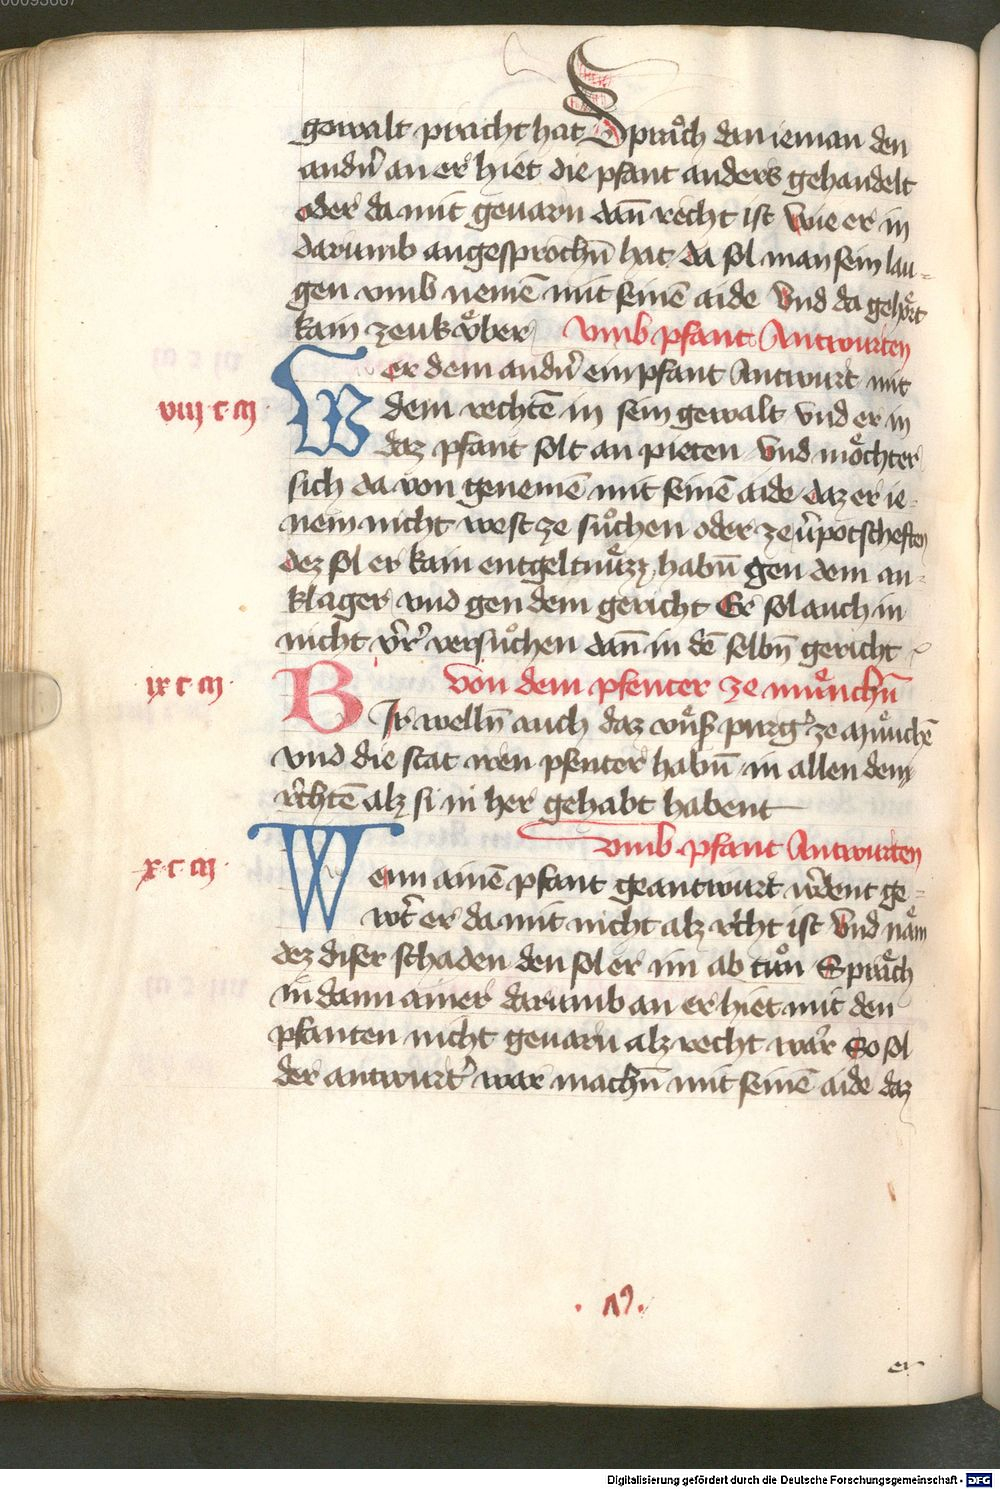 gewalt pracht hat Spraͦch dan ieman den
andn̄ an er hiet die pfant anders gehandelt
oder da mit geuarn dan̄ recht ist wie er in
darumb angesprochn̄ hat da sol man sein lau-
gen vmb nemē mit seinē aide Vnd da gehoͤrt
kain zeuk vͤber vmb pfant Antwurten
Wer dem andn̄ ein pfant Antwurt mit
viiij c iij dem rechtē in sein gewalt vnd er in
daz pfant solt an pieten Vnd moͤchter
sich da von genemē mit seinē aide daz er ie-
nem nicht west ze suͦchen oder ze v̄potscheften
dez sol er kain entgeltnuͤzz habn̄ gen dem an-
klager vnd gen dem gericht Er sol auch in
nicht v̄r̄ versuͦchen dan̄ in dē selbn̄ gericht
ix c iij von dem pfenter ze muͤnchn̄
BIr welln̄ auch daz vnſ purg̉ ze Muͤnchē
vnd die stat iren pfenter habn̄ in allen dem
r̄chtē alz si in her gehabt habent
vmb pfant Antwurten
x c iij Wenn ainē pfant geantwurt w̄dent ge-
wt̄ er da mit nicht alz r̄cht ist Vnd naͤm
dez diser schaden den sol er im ab tuͦn Spraͤch
in dann ainer darumb an er hiet mit den
pfanten nicht geuarn alz recht war̄ So sol
der antwurt̉ war machn̄ mit seinē aide daz
er
Digitalisierung gefördert durch die Deutsche Forschungsgemeinschaft - DFG